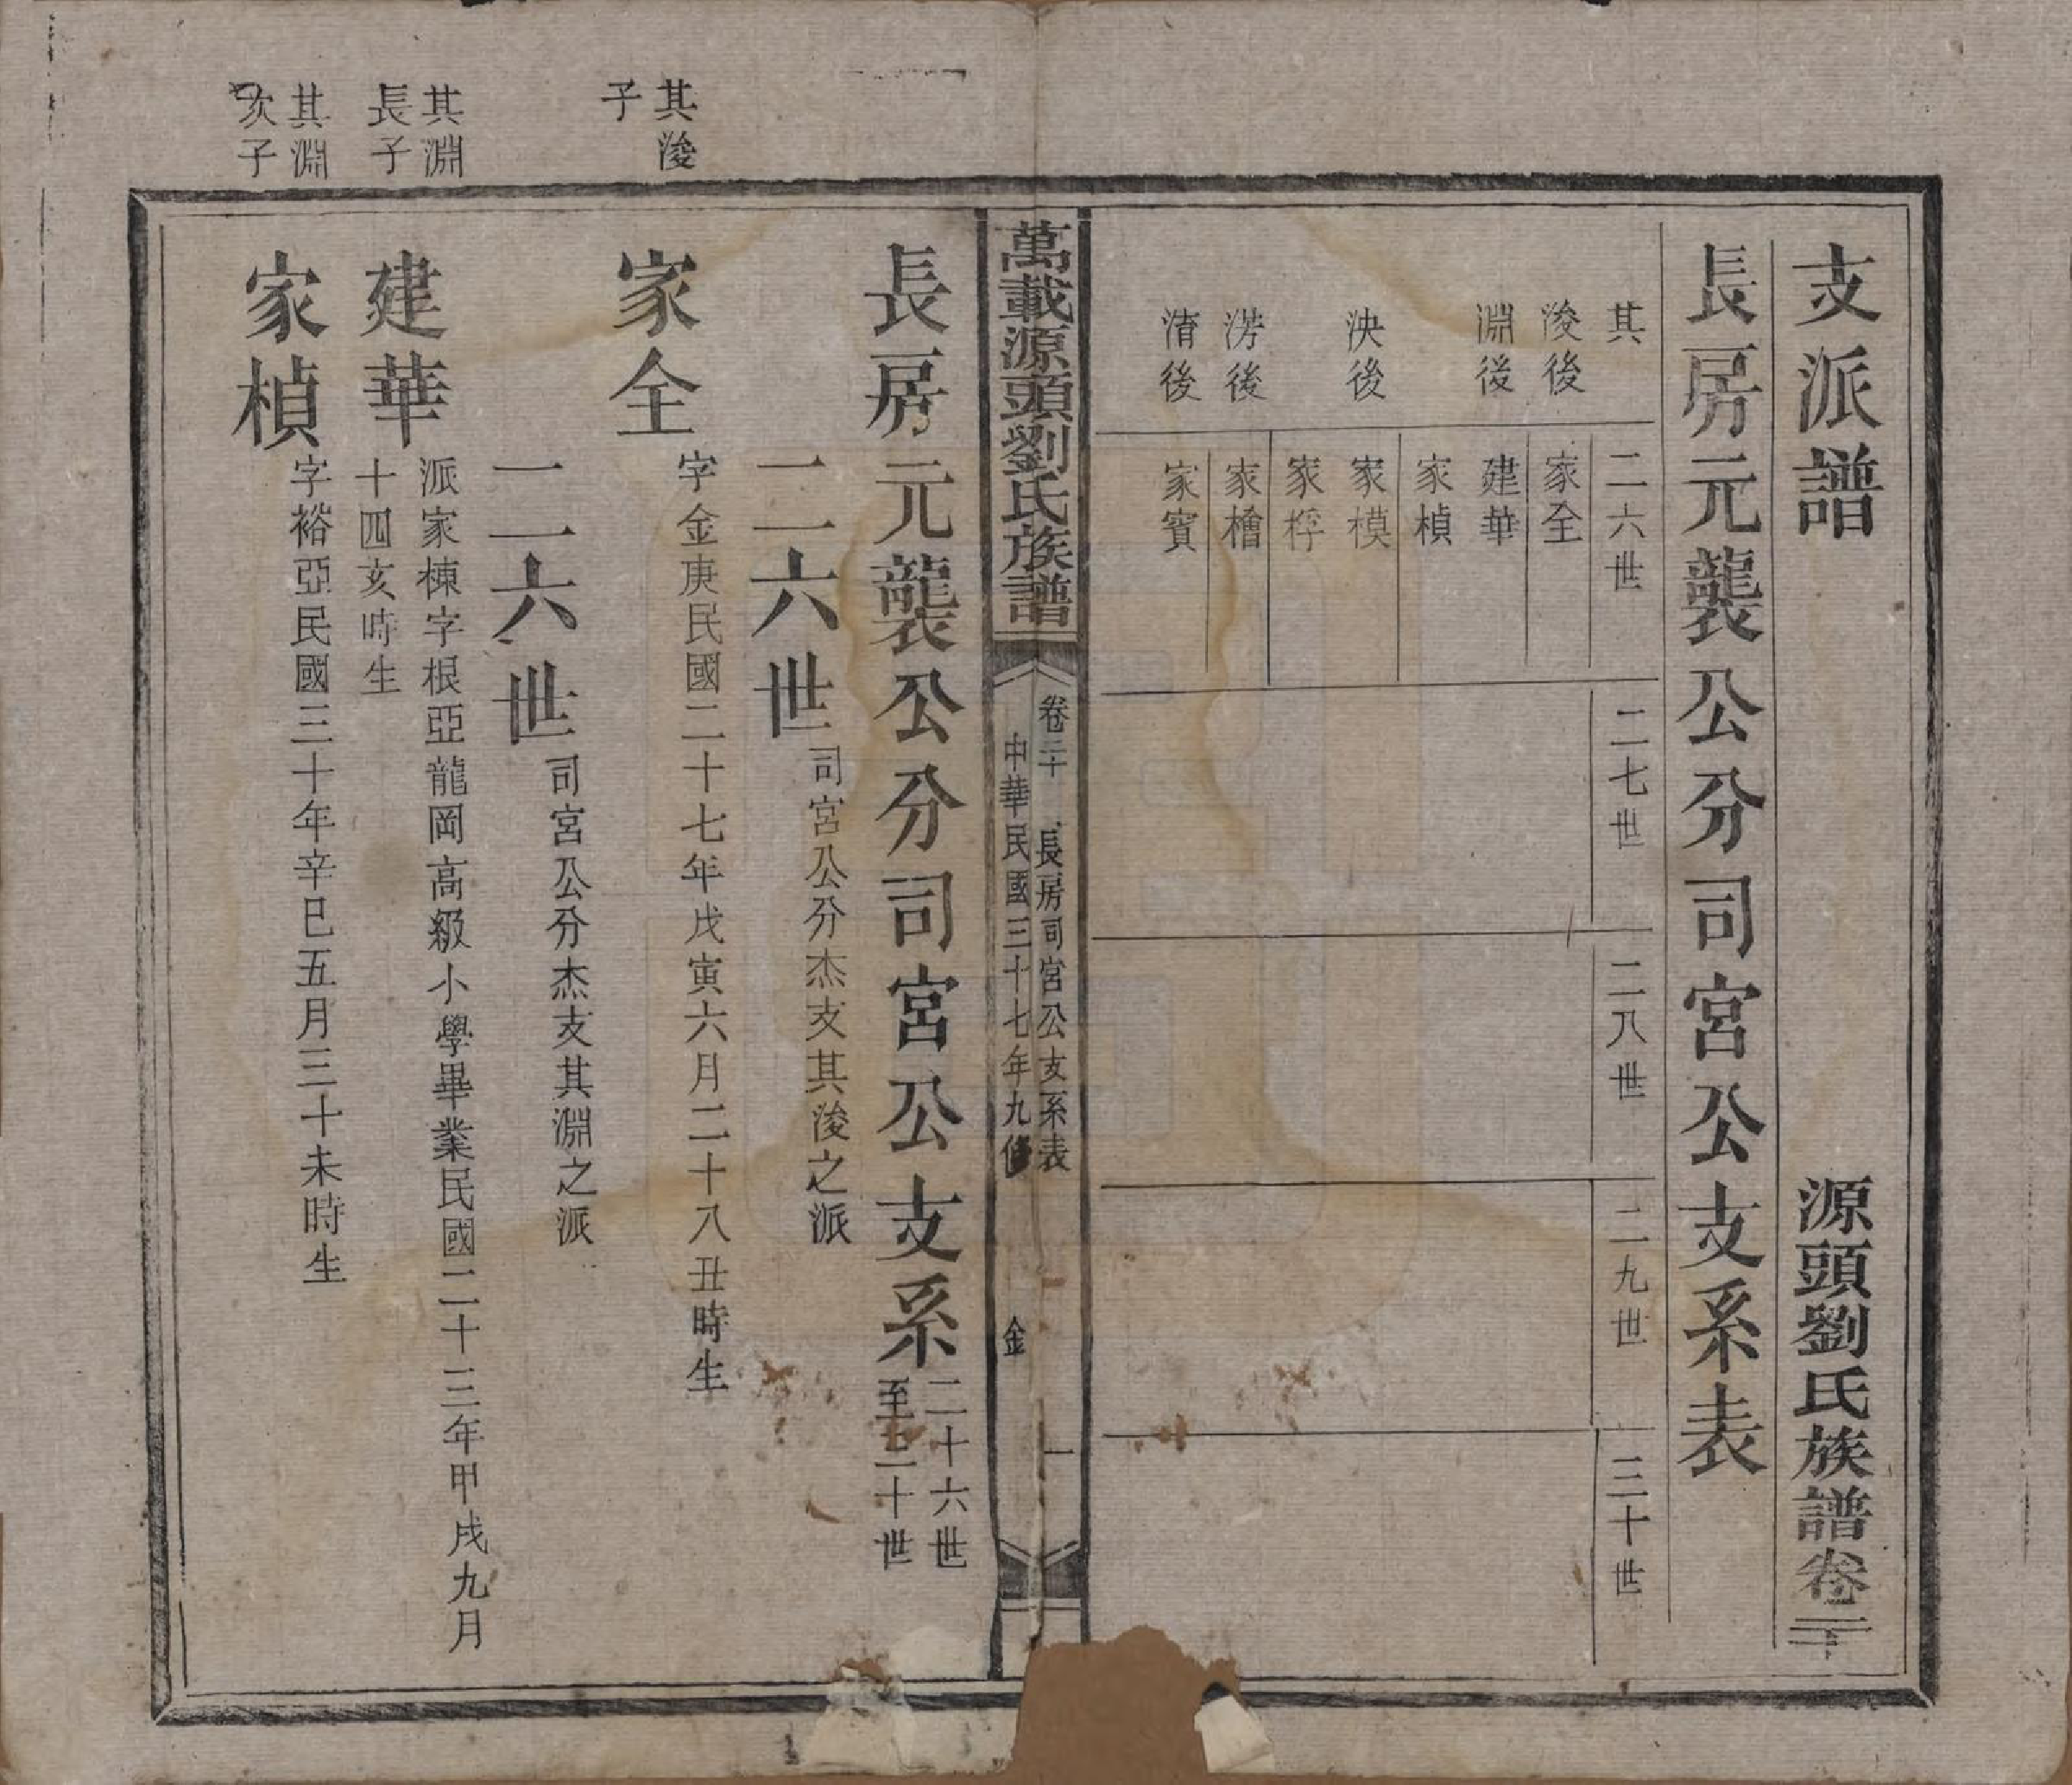 支派譜　源頭劉氏族譜卷二十
長房元襲公分司宮公支系表
其　二六世　二七世　二八世　二九世　三十世
浚後　家全
淵後　建華
家楨
泱後　家模
家桴
淓後　家檜
淯後　家賓
萬載源頭劉氏族譜
卷二十　長房司宮公支系表　一
中華民國三十七年九修　金
長房元襲公分司宮公支系
二十六世
至三十世
二六世　司宮公分杰支其浚之派
其浚
子
家全　字金庚民國二十七年戊寅六月二十八丑時生
二六世　司宮公分杰支其淵之派
其淵
長子
建華　派家棟字根亞龍岡高級小學畢業民國二十三年甲戌九月
十四亥時生
其淵
次子
家楨　字裕亞民國三十年辛巳五月三十未時生